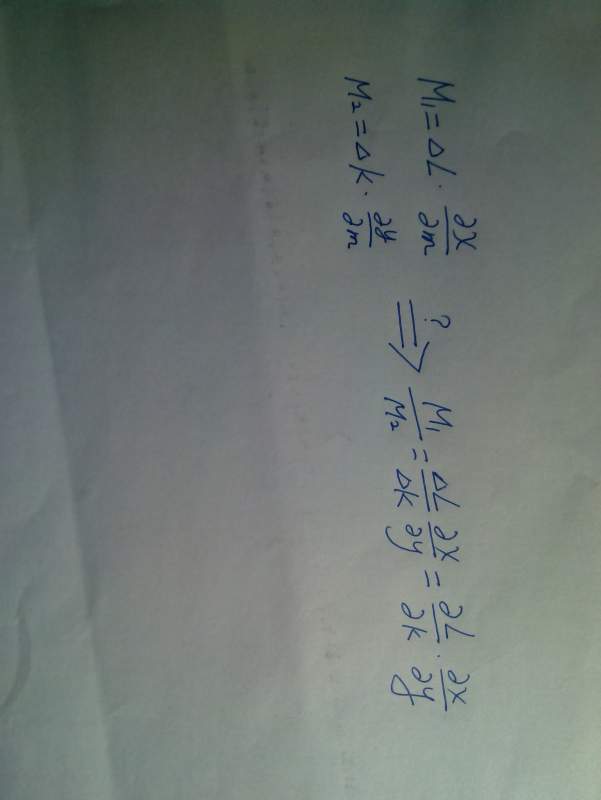 M₁ = ΔL · ∂X/∂m
M₂ = Δk · ∂y/∂m
?⟹ M₁/M₂ = ΔL/Δk ∂X/∂y = ∂L/∂k · ∂X/∂y